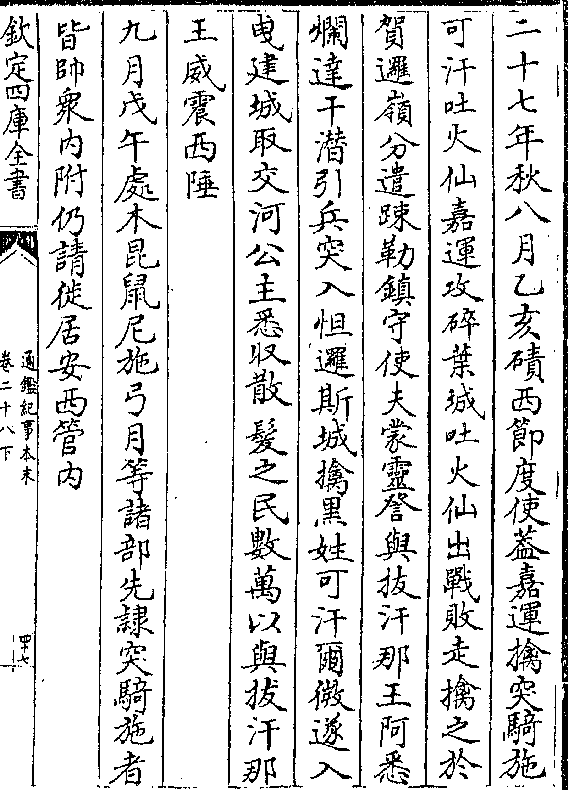 二十七年秋八月乙亥磧西節度使葢嘉運擒突騎施
可汗吐火仙嘉運攻碎葉城吐火仙出戰敗走擒之於
賀邏嶺分遣踈勒鎮守使夫蒙靈詧與拔汗那王阿悉
爛達干潛引兵突入怛邏斯城擒黑姓可汗爾微遂入
曵建城取交河公主悉収散髮之民數萬以與拔汗那
王威震西陲
九月戊午處木昆鼠尼施弓月等諸部先隷突騎施者
皆帥衆内附仍請徙居安西管内
欽定四庫全書
通鑑紀事本末
卷二十八下
四十七